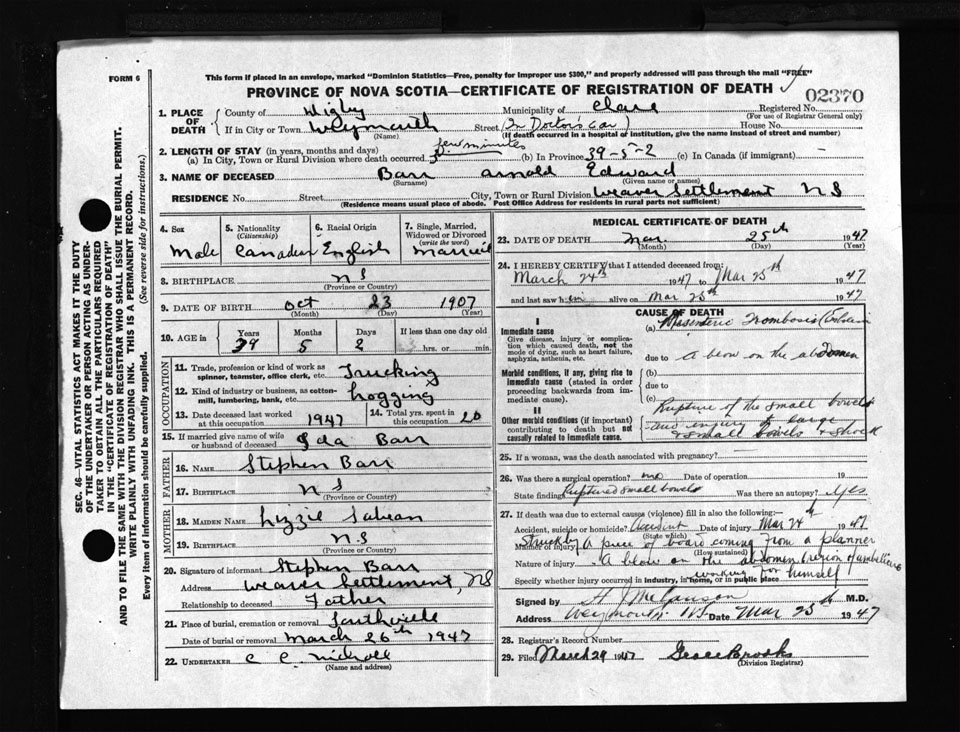 This form if placed in an envelope, marked "Dominion Statistics—Free, penalty for improper use $300," and properly addressed will pass through the mail "FREE"
FORM 6
PROVINCE OF NOVA SCOTIA—CERTIFICATE OF REGISTRATION OF DEATH
02370
1. PLACE OF DEATH
County of Digby Municipality of Clare Registered No.
(For use of Registrar General only)
If in City or Town Weymouth Street (In Doctor's Car) House No.
(Name) (If death occurred in a hospital or institution, give the name instead of street and number)
2. LENGTH OF STAY (in years, months and days)
(a) In City, Town or Rural Division where death occurred. few minutes (b) In Province 39-5-2 (c) In Canada (if immigrant) —
3. NAME OF DECEASED Barr Arnold Edward
(Surname) (Given name or names)
RESIDENCE No. Street City, Town or Rural Division Weaver Settlement NS
(Residence means usual place of abode. Post Office Address for residents in rural parts not sufficient)
4. Sex Male
5. Nationality (Citizenship) Canadian
6. Racial Origin English
7. Single, Married, Widowed or Divorced (write the word) Married
8. BIRTHPLACE N S
(Province or Country)
9. DATE OF BIRTH Oct 23 1907
(Month) (Day) (Year)
10. AGE in Years Months Days If less than one day old
39 5 2 hrs. or min.
OCCUPATION
11. Trade, profession or kind of work as spinner, teamster, office clerk, etc. Trucking
12. Kind of industry or business, as cotton-mill, lumbering, bank, etc. Logging
13. Date deceased last worked at this occupation 1947
14. Total yrs. spent in 20
15. If married give name of wife or husband of deceased Ida Barr
FATHER
16. NAME Stephen Barr
17. BIRTHPLACE N S
(Province or Country)
MOTHER
18. MAIDEN NAME Lizzie Sabean
19. BIRTHPLACE N S
(Province or Country)
20. Signature of informant Stephen Barr
Address Weaver Settlement, NS
Relationship to deceased Father
21. Place of burial, cremation or removal Southville
Date of burial or removal March 26th 1947
22. UNDERTAKER C C Nichol
(Name and address)
MEDICAL CERTIFICATE OF DEATH
23. DATE OF DEATH Mar. 25th 1947
(Month) (Day) (Year)
24. I HEREBY CERTIFY that I attended deceased from:
March 24th 1947 to Mar 25th 1947
and last saw him alive on Mar 25th 1947
CAUSE OF DEATH
I
Immediate cause
Give disease, injury or complication which caused death, not the mode of dying, such as heart failure, asphyxia, asthenia, etc.
(a) Mesenteric Trombosis
due to a blow on the abdomen
Morbid conditions, if any, giving rise to immediate cause (stated in order proceeding backwards from immediate cause).
(b)
due to
(c)
II
Other morbid conditions (if important) contributing to death but not causally related to immediate cause.
Rupture of the small bowels
and injury to large
& small bowels & shock
25. If a woman, was the death associated with pregnancy?
26. Was there a surgical operation? no Date of operation 19
State findings Ruptured small bowels Was there an autopsy? Yes
27. If death was due to external causes (violence) fill in also the following:
Accident, suicide or homicide? Accident Date of injury Mar 24th 1947
(State which)
Manner of injury Struck by a piece of board coming from a planner
(How sustained)
Nature of injury A blow on the abdomen (region of umbilicus
Specify whether injury occurred in industry, in home, or in public place working for himself
Signed by H J Melanson M.D.
Address Weymouth N.S. Date Mar 25th 1947
28. Registrar's Record Number
29. Filed March 29 1947 Grace Brooks
(Division Registrar)
SEC. 46—VITAL STATISTICS ACT MAKES IT THE DUTY
OF THE UNDERTAKER OR PERSON ACTING AS UNDER-
TAKER TO OBTAIN ALL THE PARTICULARS REQUIRED
IN THE "CERTIFICATE OF REGISTRATION OF DEATH"
AND TO FILE THE SAME WITH THE DIVISION REGISTRAR WHO SHALL ISSUE THE BURIAL PERMIT.
WRITE PLAINLY WITH UNFADING INK. THIS IS A PERMANENT RECORD.
Every item of information should be carefully supplied. (See reverse side for instructions.)